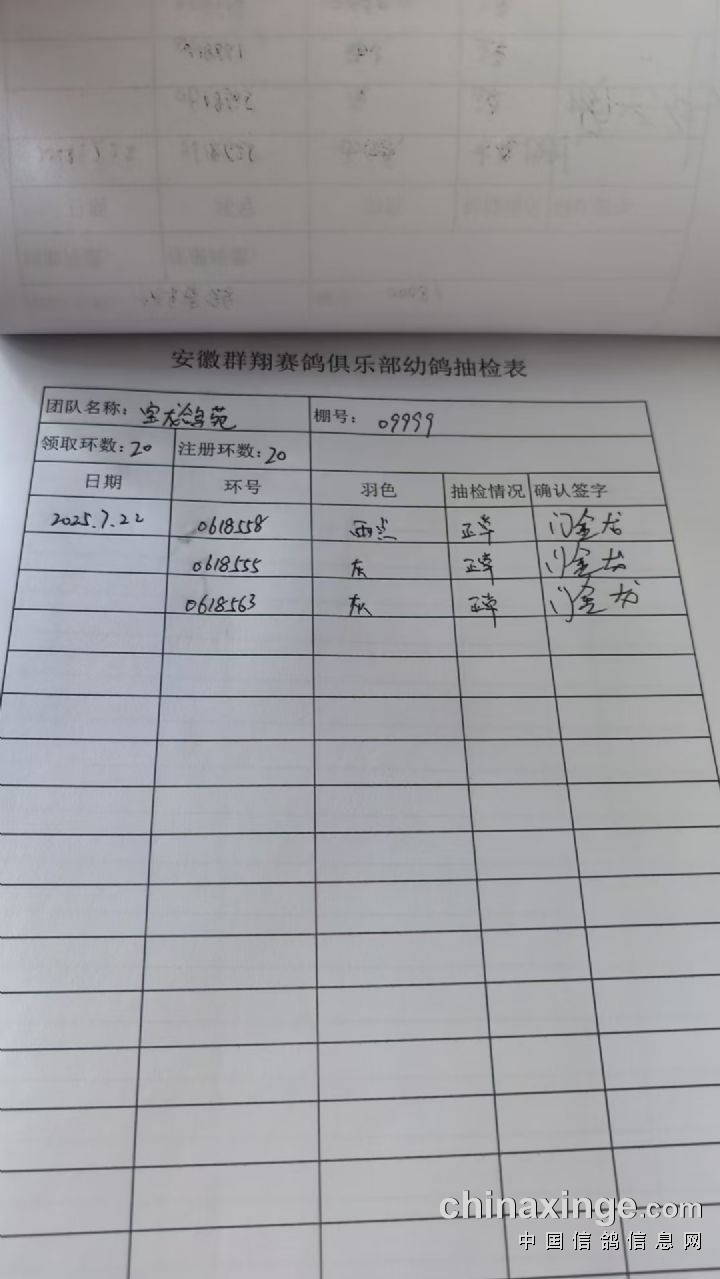 安徽群翔赛鸽俱乐部幼鸽抽检表
团队名称：宝龙鸽苑 棚号：09999
领取环数：20 注册环数：20
日期 环号 羽色 抽检情况 确认签字
2025.7.22 0618558 雨点 正常 闫金龙
0618555 灰 正常 闫金龙
0618563 灰 正常 闫金龙
chinaxinge.com
中国信鸽信息网